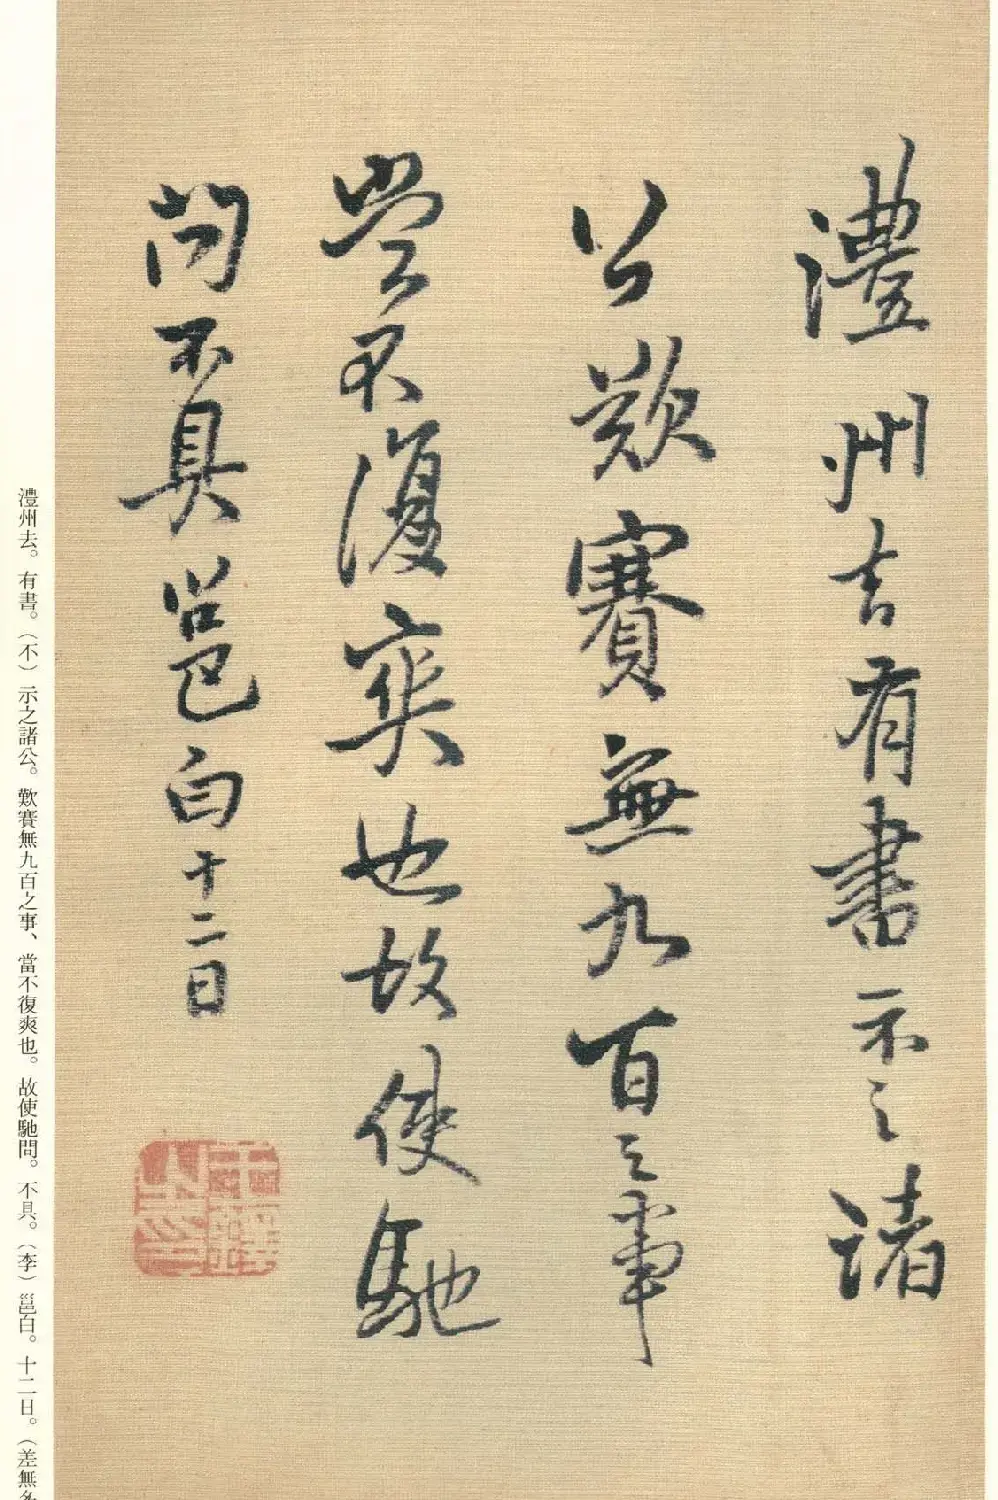 澧州去有書示之諸
公歎賽無九百之事
當不復爽也故使馳
問不具邕白十二日
澧州去。有書。（不）示之諸公。歎賽無九百之事、當不復爽也。故使馳問。不具。（李）邕白。十二日。（差無